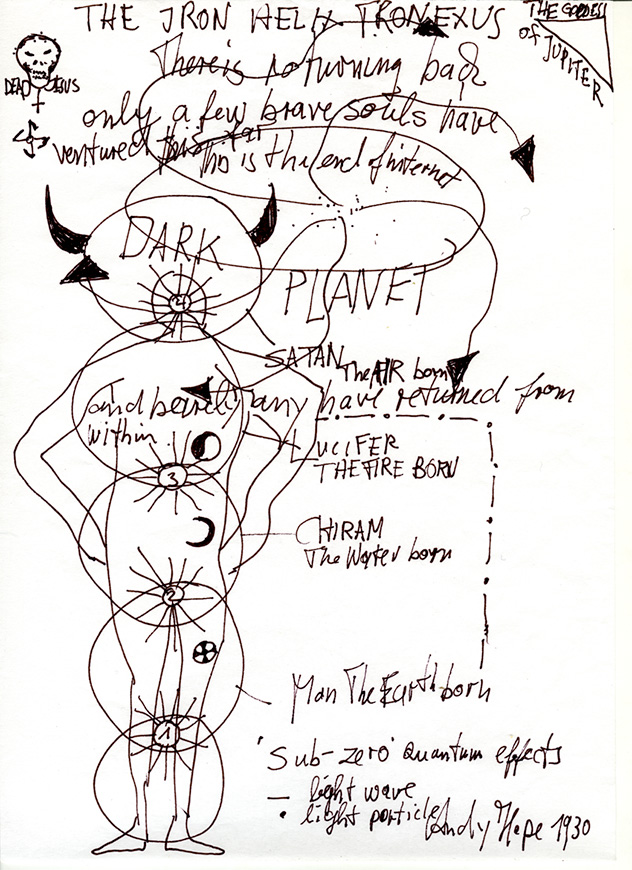 THE IRON HELIX TRONEXUS
THE GODDESS
of JUPITER
DEAD JESUS
There is no turning back
only a few brave souls have
ventured this far
This is the end of internet
DARK
PLANET
4
SATAN
The AIR born
And barely any have returned from
within
LUCIFER
THE FIRE BORN
3
CHIRAM
The Water born
2
Man The Earth born
1
'Sub-zero' Quantum effects
— light wave
• light particle
Andy Hope 1930